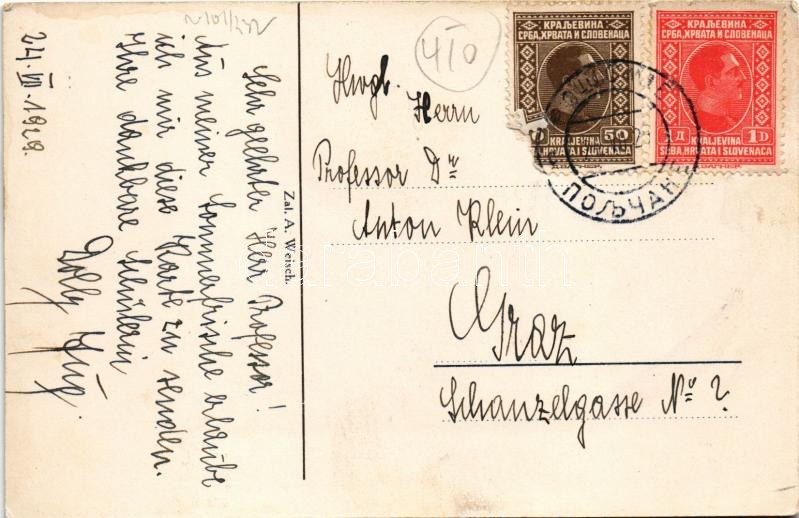 24. VII. 1929.
Sehr geehrter Herr Professor!
Aus meiner Sommerfrische erlaube
ich mir diese Karte zu senden.
Ihre dankbare Schülerin
Zal. A. Weisch.
410
Herrn
Professor Dr
Anton Klein
Graz
Schanzelgasse No ?
КРАЉЕВИНА
СРБА, ХРВАТА И СЛОВЕНАЦА
50
KRALJEVINA
HRVATA I SLOVENACA
КРАЉЕВИНА
СРБА, ХРВАТА И СЛОВЕНАЦА
Д 1D
KRALJEVINA
SRBA, HRVATA I SLOVENACA
ПОЉЧАНЕ